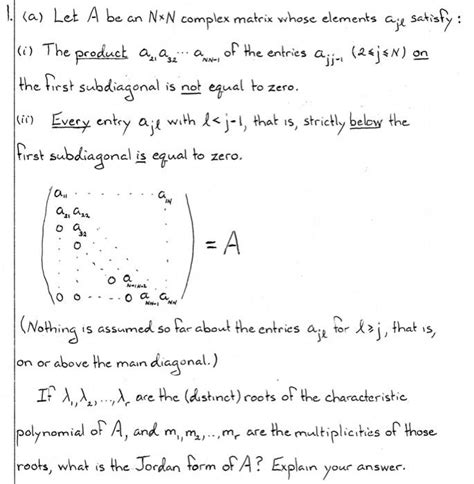 1. (a) Let A be an N×N complex matrix whose elements a_jl satisfy:
(i) The product a_21 a_32 ⋯ a_NN-1 of the entries a_jj-1 (2≤j≤N) on
the first subdiagonal is not equal to zero.
(ii) Every entry a_jl with l<j-1, that is, strictly below the
first subdiagonal is equal to zero.
a_11 . . . . . . . a_1N
a_21 a_22
0 a_32
0
= A
0 a_N-1N-2
0 0 . . . . . 0 a_NN-1 a_NN
(Nothing is assumed so far about the entries a_jl for l≥j, that is,
on or above the main diagonal.)
If λ_1, λ_2, ..., λ_r are the (distinct) roots of the characteristic
polynomial of A, and m_1, m_2, .., m_r are the multiplicities of those
roots, what is the Jordan form of A? Explain your answer.